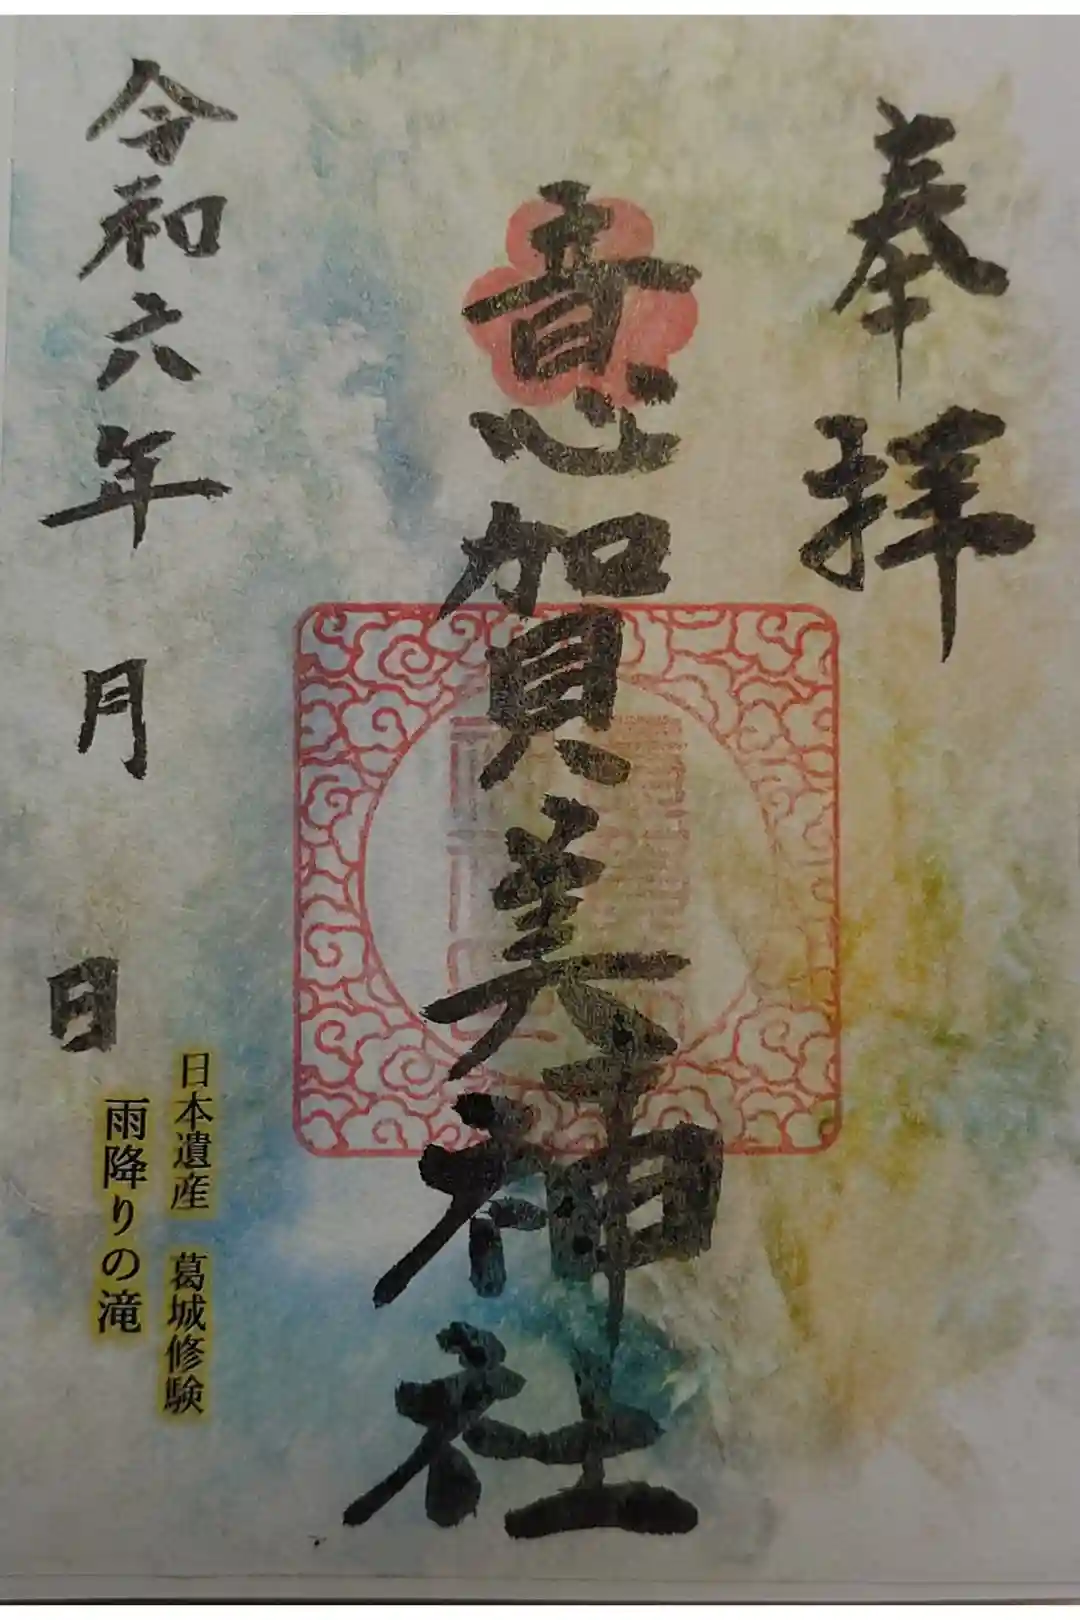 奉拝
意賀美神社
令和六年 月 日
日本遺産 葛城修験
雨降りの滝